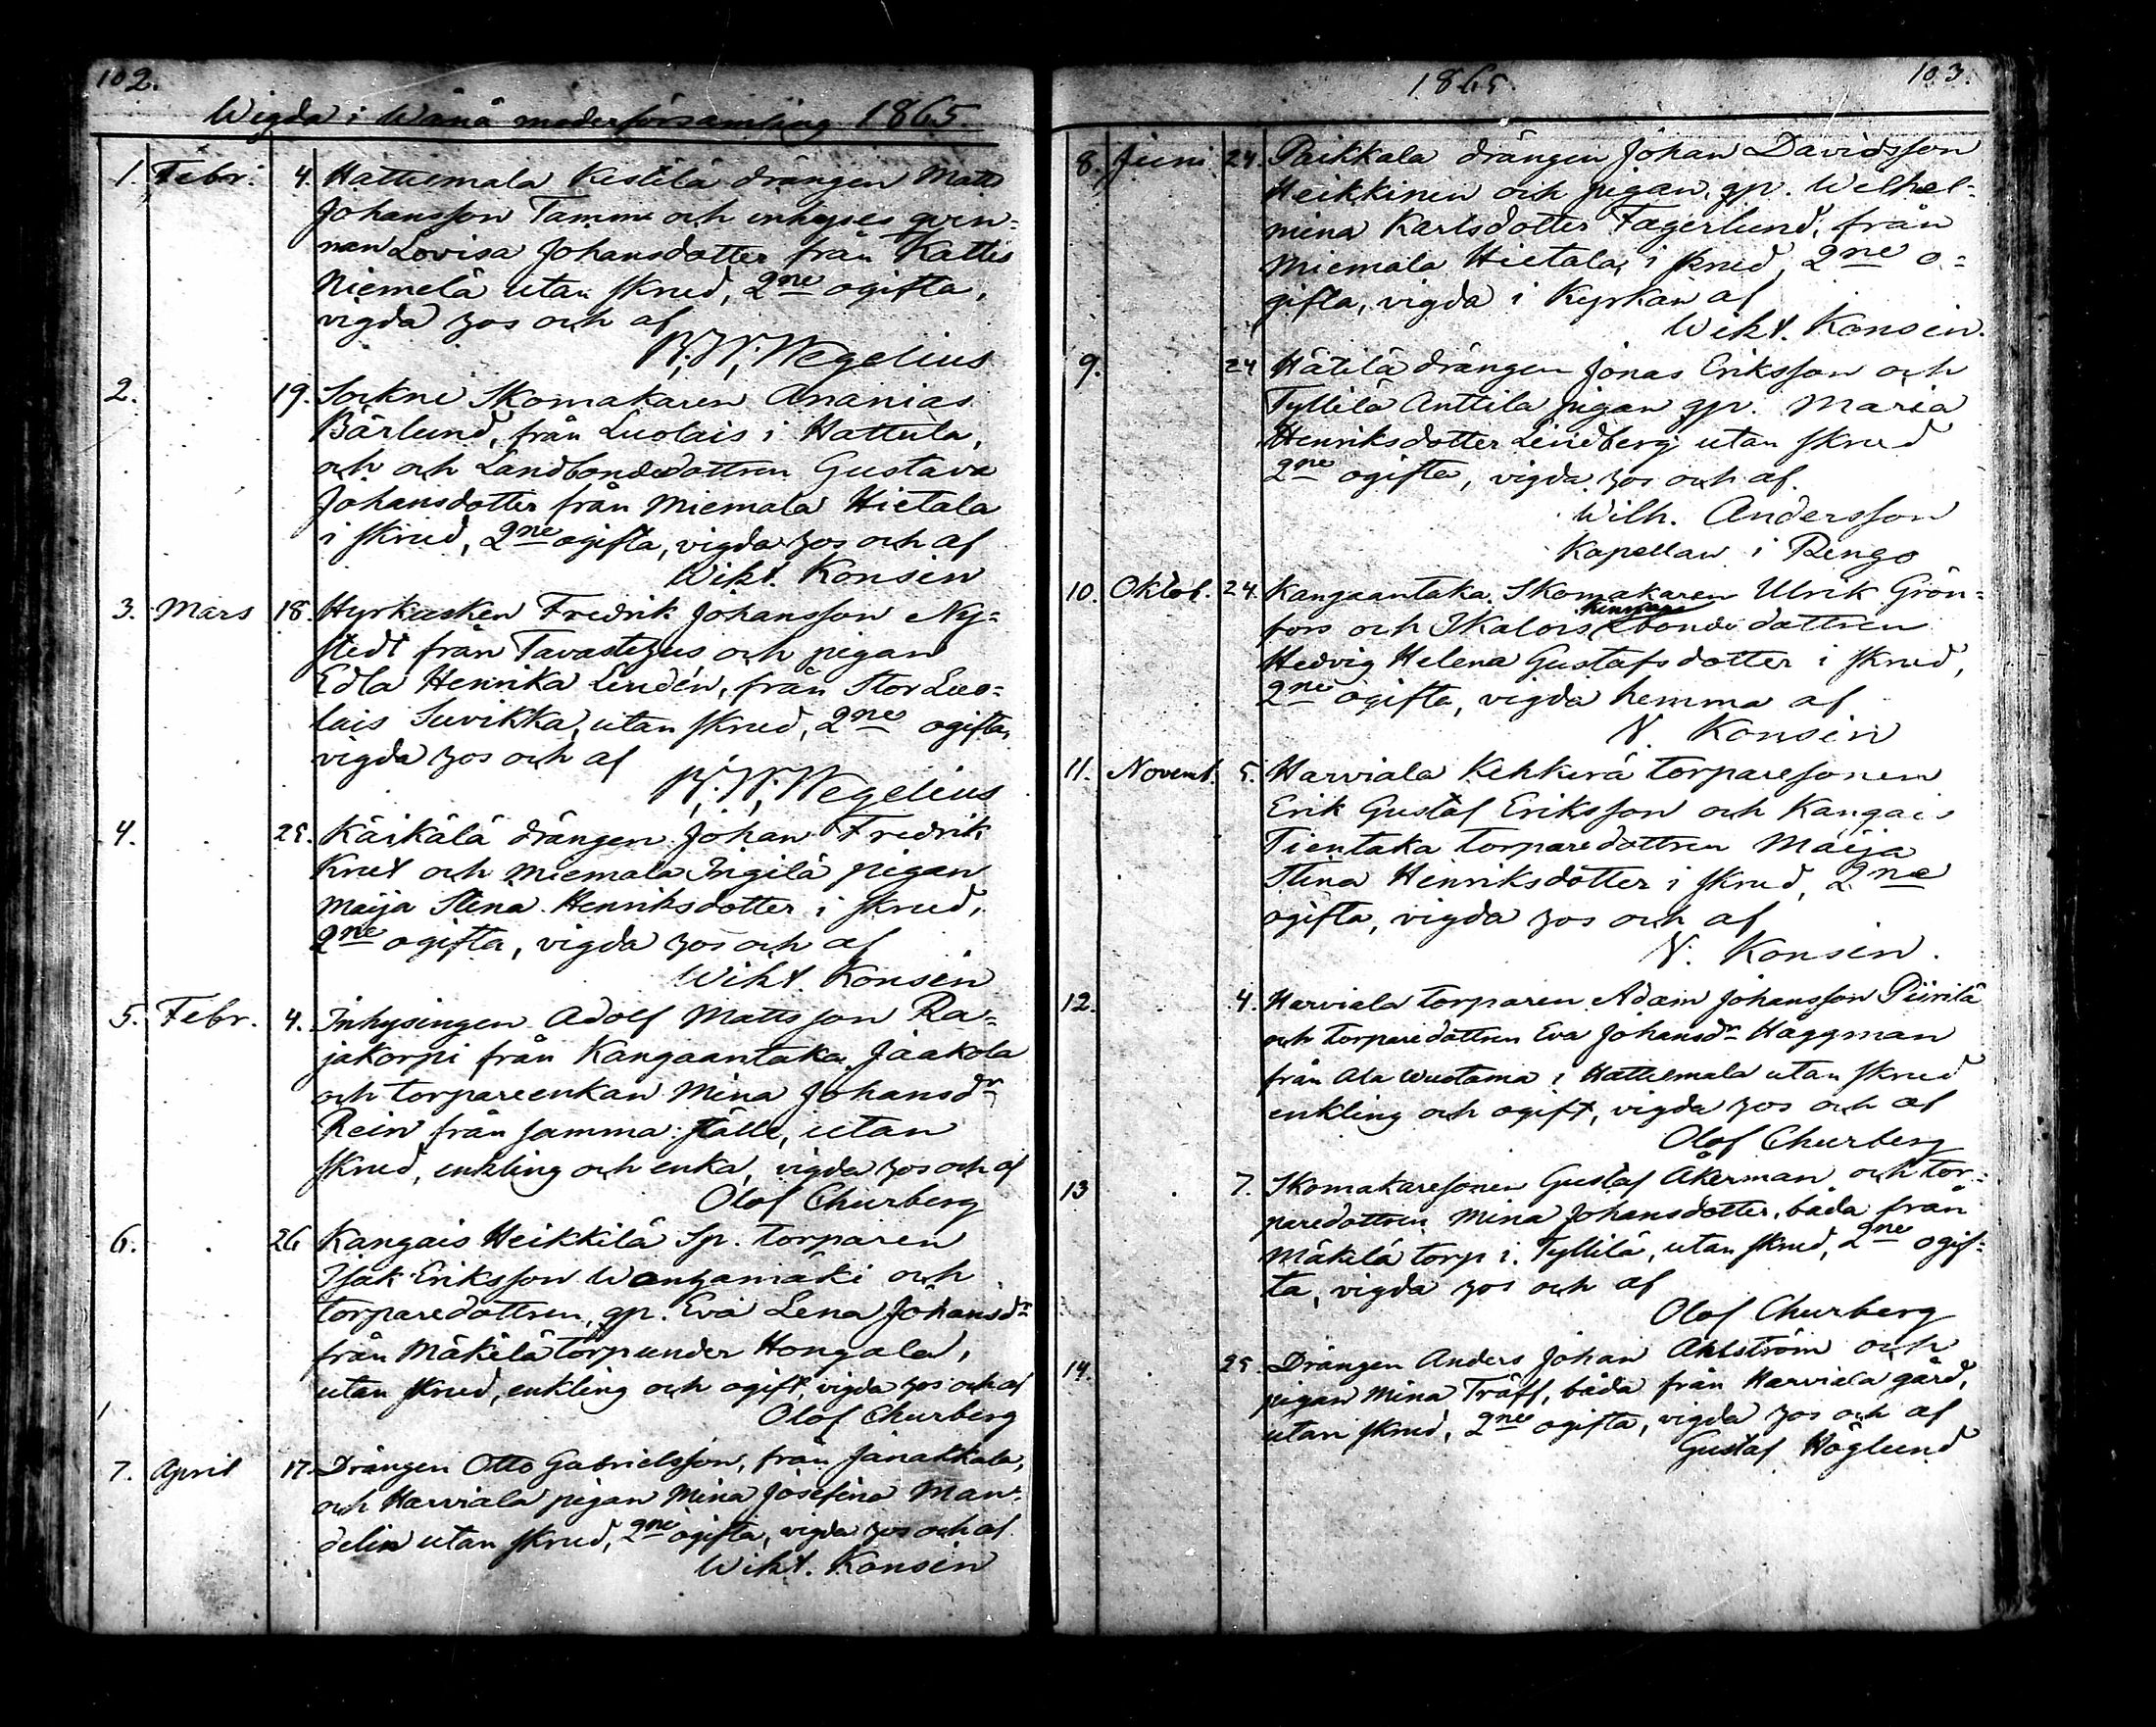 102.
Wigda i Wånå moderförsamling 1865.
1. Febr. 4. Hattelmala Kestilä drängen Matts
Johansson Tammi och inhyses qvin-
nan Lovisa Johansdotter från Kattis
Niemelä utan skrud, 2ne ogifta,
vigda hos och af
K. W. Wegelius
2. 19. Sockne Skomakaren Ananias
Bärlund, från Luolais i Hattula,
och och Landbondedottren Gustava
Johansdotter från Miemala Hietala
i skrud, 2ne ogifta, vigda hos och af
Wikt. Konsin
3. Mars 18. Hyrkusken Fredrik Johansson Ny-
stedt från Tavastehus och pigan
Edla Henrika Lindén, från Stor Luo-
lais Suvikka, utan skrud, 2ne ogifta,
vigda hos och af
K. W. Wegelius
4. 25. Käikälä drängen Johan Fredrik
Knut och Miemala Ingilä pigan
Maija Stina Henriksdotter i skrud,
2ne ogifta, vigda hos och af
Wikt. Konsin
5. Febr. 4. Inhysingen Adolf Mattsson Ra-
jakorpi från Kangaantaka Jaakola
och torpareenkan Mina Johansdr
Rein från samma ställe, utan
skrud, enkling och enka, vigda hos och af
Olof Churberg
6. 26 Kangais Heikkilä Sp. torparen
Isak Eriksson Wanhamäki och
torparedottren, qp. Eva Lena Johansdr
från Mäkelä torp under Hongala,
utan skrud, enkling och ogift, vigda hos och af
Olof Churberg
7. April 17. Drängen Otto Gabrielsson, från Janakkala,
och Harviala pigan Mina Josefina Man-
delin utan skrud, 2ne ogifta, vigda hos och af
Wikt. Konsin
1865
103.
8. Juni 24. Paikkala drängen Johan Davidsson
Heikkinen och pigan, qp. Wilhel-
mina Karlsdotter Fagerlund, från
Miemala Hietala, i skrud, 2ne o-
gifta, vigda i Kyrkan af
Wikt. Konsin.
9. 24 Hätilä drängen Jonas Eriksson och
Tyllilä Anttila pigan qp. Maria
Henriksdotter Lindberg utan skrud
2ne ogifta, vigda hos och af.
Wilh. Andersson
Kapellan i Rengo
10. Oktob. 24. Kangaantaka Skomakaren Ulrik Grön-
fors och Ikalois bondedottren
Hedvig Helena Gustafsdotter i skrud,
2ne ogifta, vigda hemma af
V. Konsin
11. Novemb. 5. Harviala Kehkerä torparesonen
Erik Gustaf Eriksson och Kangais
Tientaka torparedottren Maija
Stina Henriksdotter i skrud, 2ne
ogifta, vigda hos och af
V. Konsin.
12. 4. Harviala torparen Adam Johansson Piirilä
och torparedottren Eva Johansdr Häggman
från Ala Wustama i Hattelmala utan skrud
enkling och ogift, vigda hos och af
Olof Churberg
13 7. Skomakaresonen Gustaf Åkerman och tor-
paredottren Mina Johansdotter, båda från
Mäkilä torp i Tyllilä, utan skrud, 2ne ogif-
ta, vigda hos och af
Olof Churberg
14. 25. Drängen Anders Johan Ahlström och
pigan Mina Träff, båda från Harviala gård,
utan skrud, 2ne ogifta, vigda hos och af
Gustaf Höglund